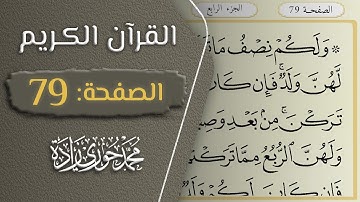 القرآن الكريم
الصفحة: 79
محمد خوري زادة
الصفحة 79
الجزء الرابع
وَلَكُمْ نِصْفُ مَا تَ
لَّهُنَّ وَلَدٌ فَإِن كَا
تَرَكْنَ مِنۢ بَعْدِ وَصِ
وَلَهُنَّ الرُّبُعُ مِمَّا تَرَكْ
فَإِن كَانَ لَكُمْ وَلَ